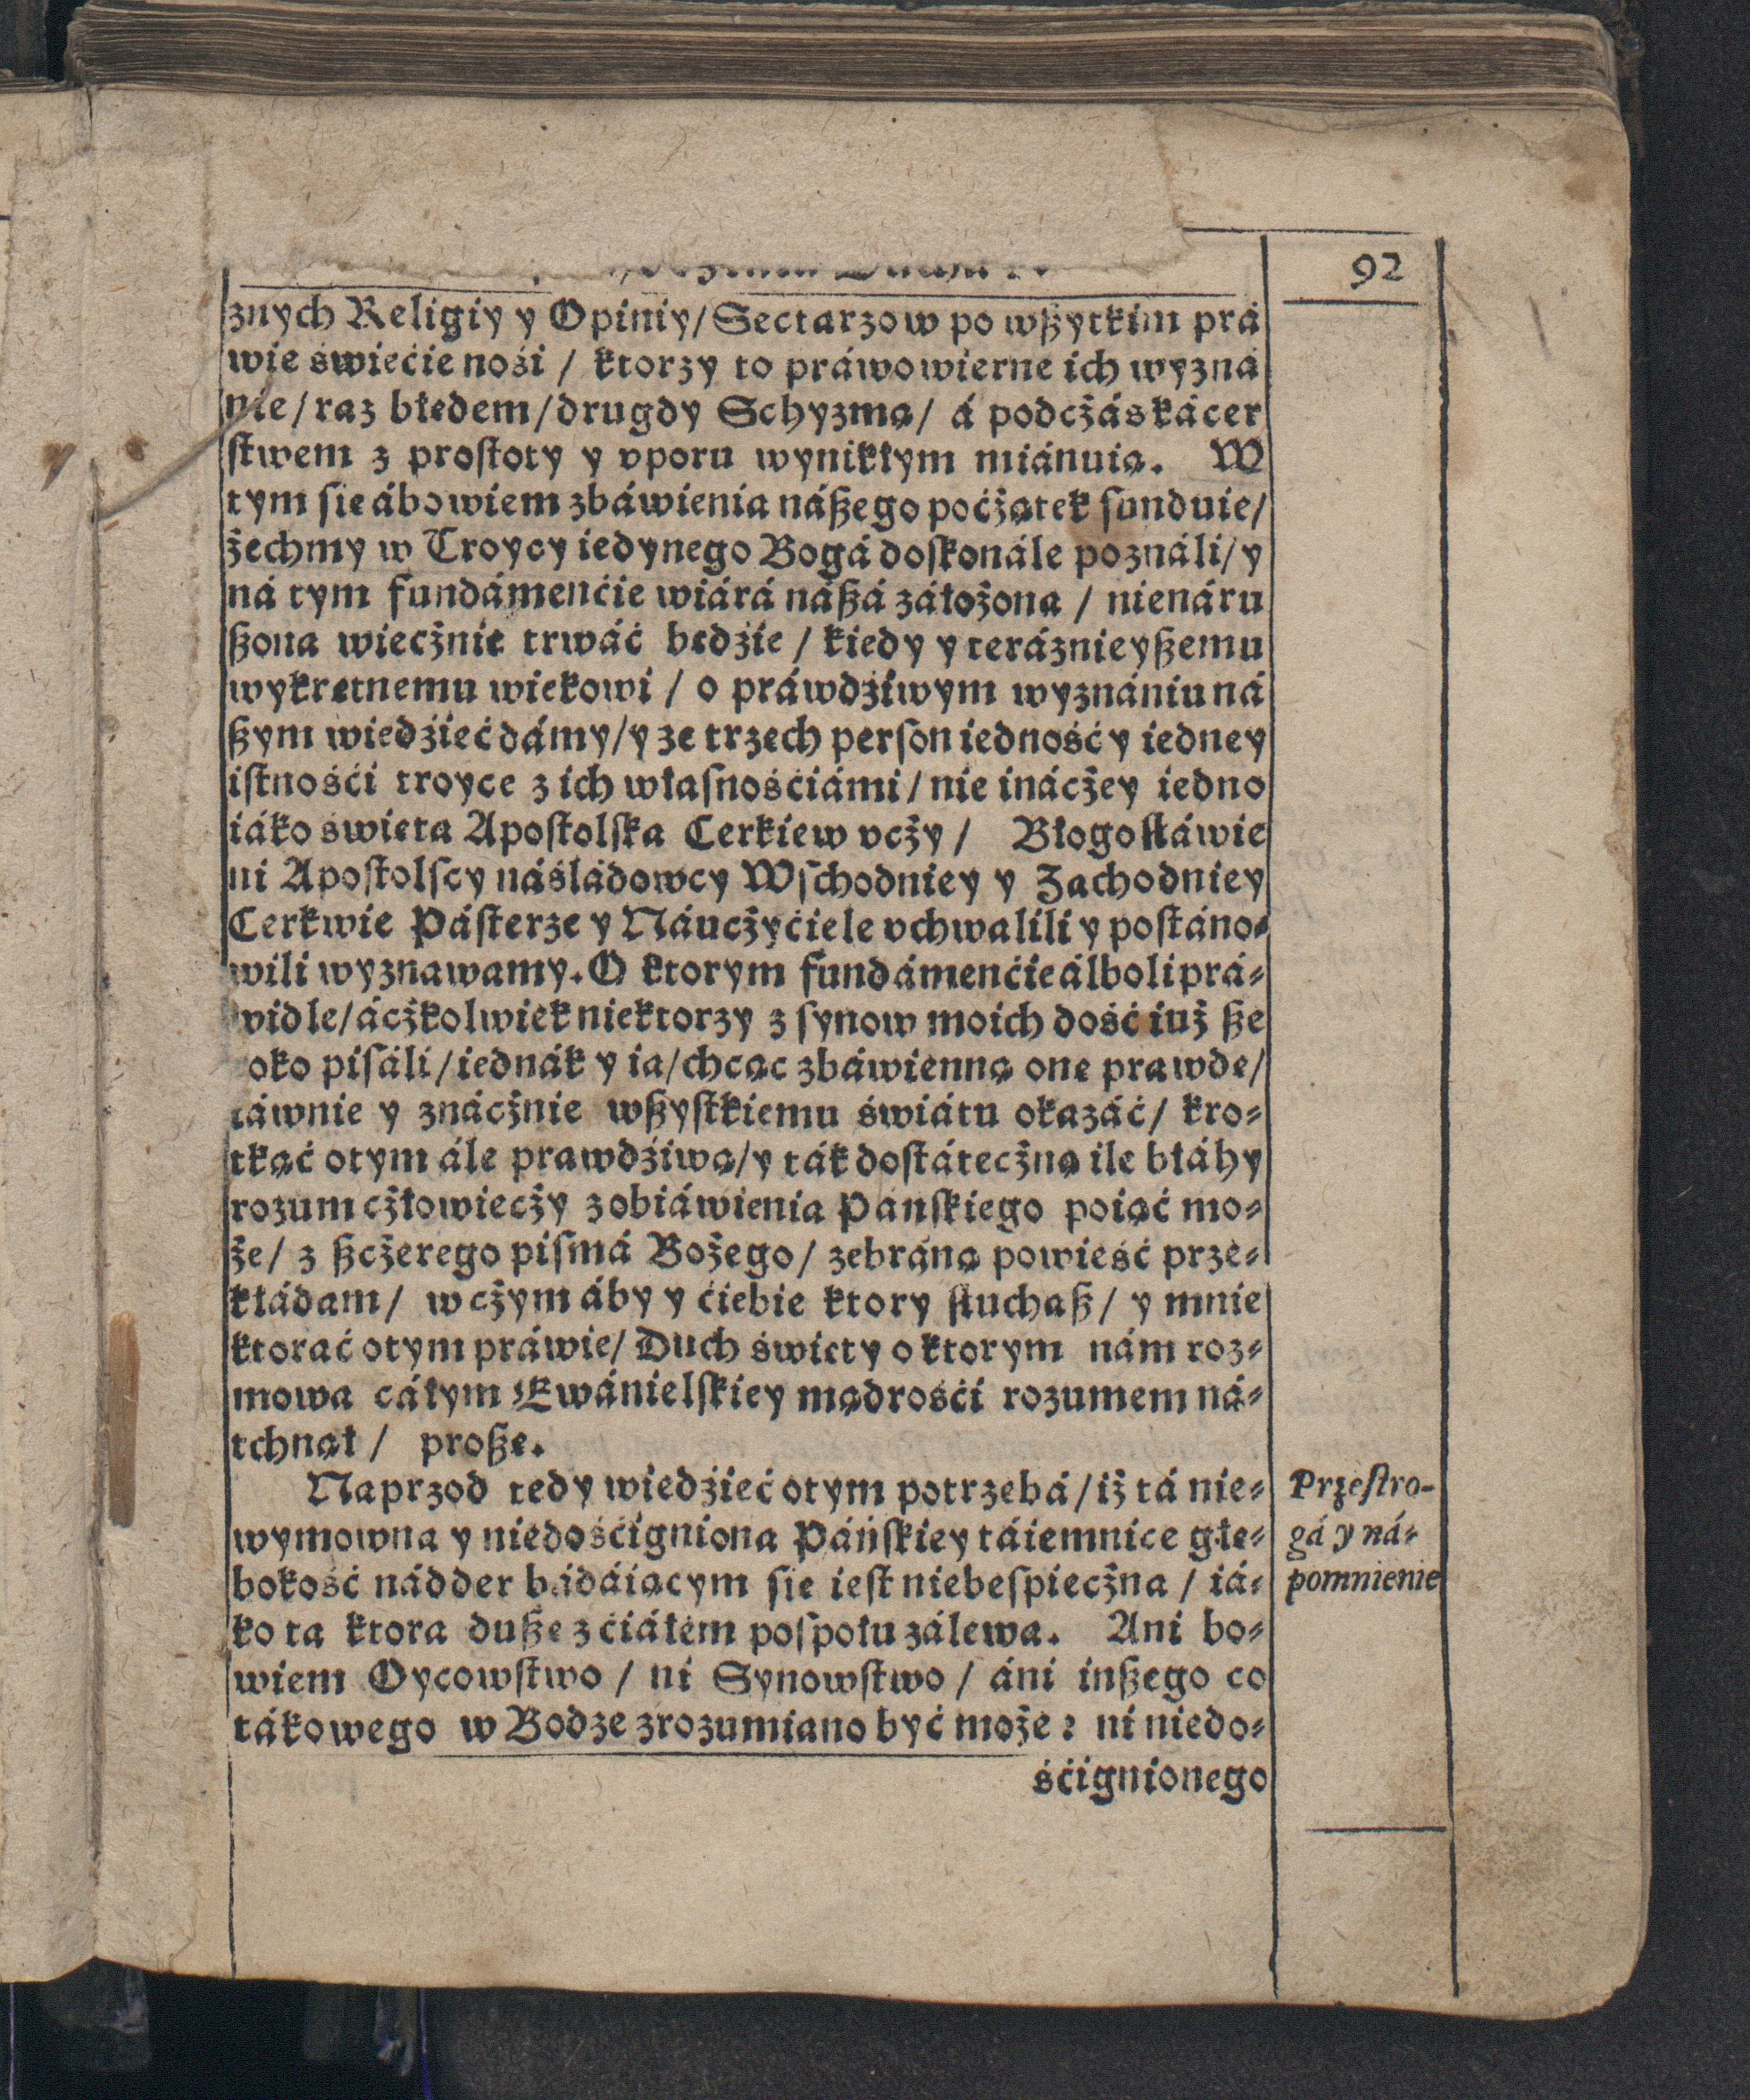 92
znych Religiy y Opiniy/Sectarzow po wßytkim prá
wie świećie nośi / ktorzy to práwowierne ich wyzná
nie/raz błędem/drugdy Schyzmą/ á podcżás kácer
stwem z prostoty y vporu wynikłym miánuią. W
tym się ábowiem zbáwienia náßego pocżątek funduie/
żechmy w Troycy iedynego Bogá doskonále poználi/y
ná tym fundámenćie wiárá náßá záłożona / nienáru
ßona wiecżnie trwáć będźie / kiedy y teráznieyßemu
wykrętnemu wiekowi / o práwdźiwym wyznániu ná
ßym wiedźieć dámy/y ze trzech person iedność y iedney
istnośći troyce z ich własnośćiámi/ nie inácżey iedno
iáko święta Apostolska Cerkiew vcży / Błogosłáwie
ni Apostolscy náśládowcy Wschodniey y Zachodniey
Cerkwie Pásterze y Náucżyćiele vchwalili y postáno-
wili wyznawamy. O ktorym fundámenćie álboli prá-
widle/ácżkolwiek niektorzy z synow moich dość iuż ße
oko pisáli/iednák y ia/chcąc zbáwienną onę prawdę/
iáwnie y znácżnie wßystkiemu świátu okazáć/ kro-
tkąć otym ále prawdźiwą/y ták dostátecżną ile błáhy
rozum cżłowiecży z obiáwienia Pańskiego poiąć mo-
że/ z ßcżerego pismá Bożego/ zebráną powieść prze-
kłádam/ w cżym áby y ćiebie ktory słuchaß/ y mnie
ktorać otym práwię/ Duch święty o ktorym nám roz-
mowa cáłym Ewánielskiey mądrośći rozumem ná-
tchnął / proßę.
Naprzod tedy wiedźieć otym potrzebá/iż tá nie-
wymowna y niedośćigniona Páńskiey táiemnice głę-
bokość nádder bádáiącym się iest niebespiecżna / iá-
ko ta ktora dußę z ćiáłem pospołu zálewa. Ani bo-
wiem Oycowstwo / ni Synowstwo / áni inßego co
tákowego w Bodze zrozumiano być może: ni niedo-
śćignionego
Przestro-
gá y ná-
pomnienie